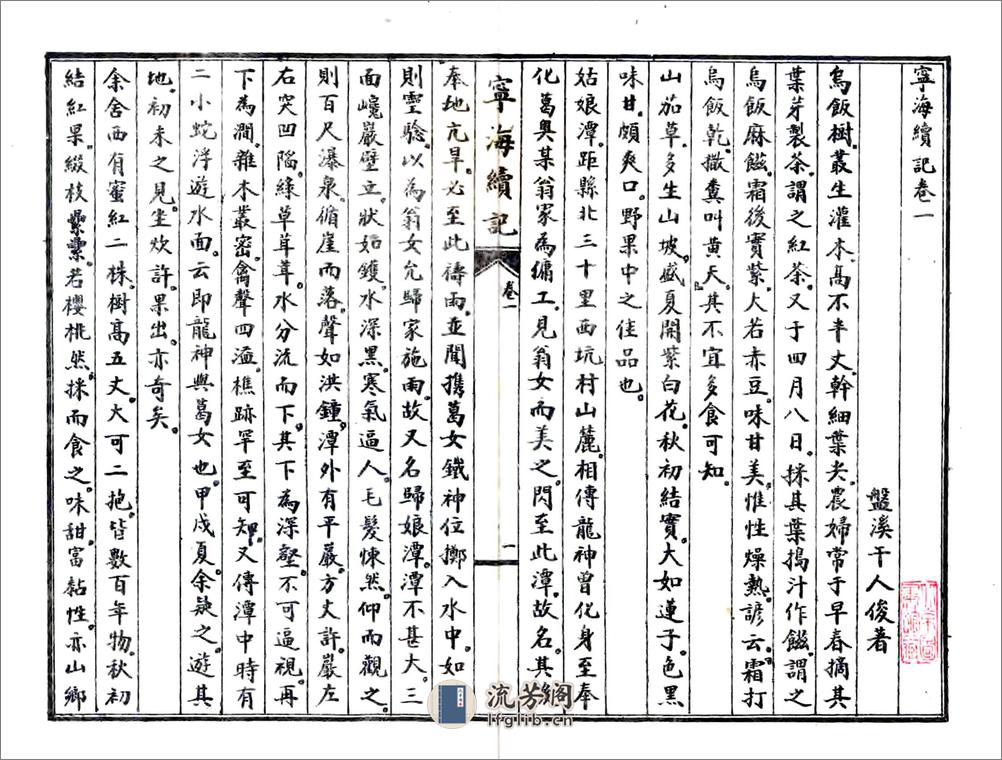 寧海續記卷一
盤溪干人俊著
烏飯樹。叢生灌木。高不半丈。幹細葉尖。農婦常于早春摘其
葉芽製茶。謂之紅茶。又于四月八日。採其葉搗汁作餻。謂之
烏飯麻餻。霜後實紫。大如赤豆。味甘美。惟性燥熱。諺云。霜打
烏飯乾。撒糞叫黃天。其不宜多食可知。
山茄草。多生山坡。盛夏開紫白花。秋初結實。大如蓮子。色黑
味甘。頗爽口。野果中之佳品也。
姑娘潭。距縣北三十里西坑村山麓。相傳龍神曾化身至奉
化葛奧某翁家為傭工。見翁女而美之。閃至此潭。故名。其
寧海續記
卷一
一
奉地亢旱。必至此禱雨。並聞攜葛女鐵神位擲入水中。如
則靈驗。以為翁女允歸家施雨。故又名歸娘潭。潭不甚大。三
面巉巖壁立。狀如鑊。水深黑。寒氣逼人。毛髮悚然。仰而觀之
則百尺瀑泉。循崖而落。聲如洪鐘。潭外有平巖。方丈許。巖左
右突凹陷。綠草茸茸。水分流而下。其下為深壑。不可逼視。再
下為澗。雜木叢密。禽聲四溢。樵跡罕至可知。又傳潭中時有
二小蛇浮遊水面。云即龍神與葛女也。甲戌夏。余疑之。遊其
地。初未之見。坐欢許。果出。亦奇矣。
余舍西有蜜紅二株。樹高五丈。大可二抱。皆數百年物。秋初
結紅果。綴枝纍纍。若櫻桃然。採而食之。味甜。富黏性。亦山鄉
流芳阁
lfglib.cn